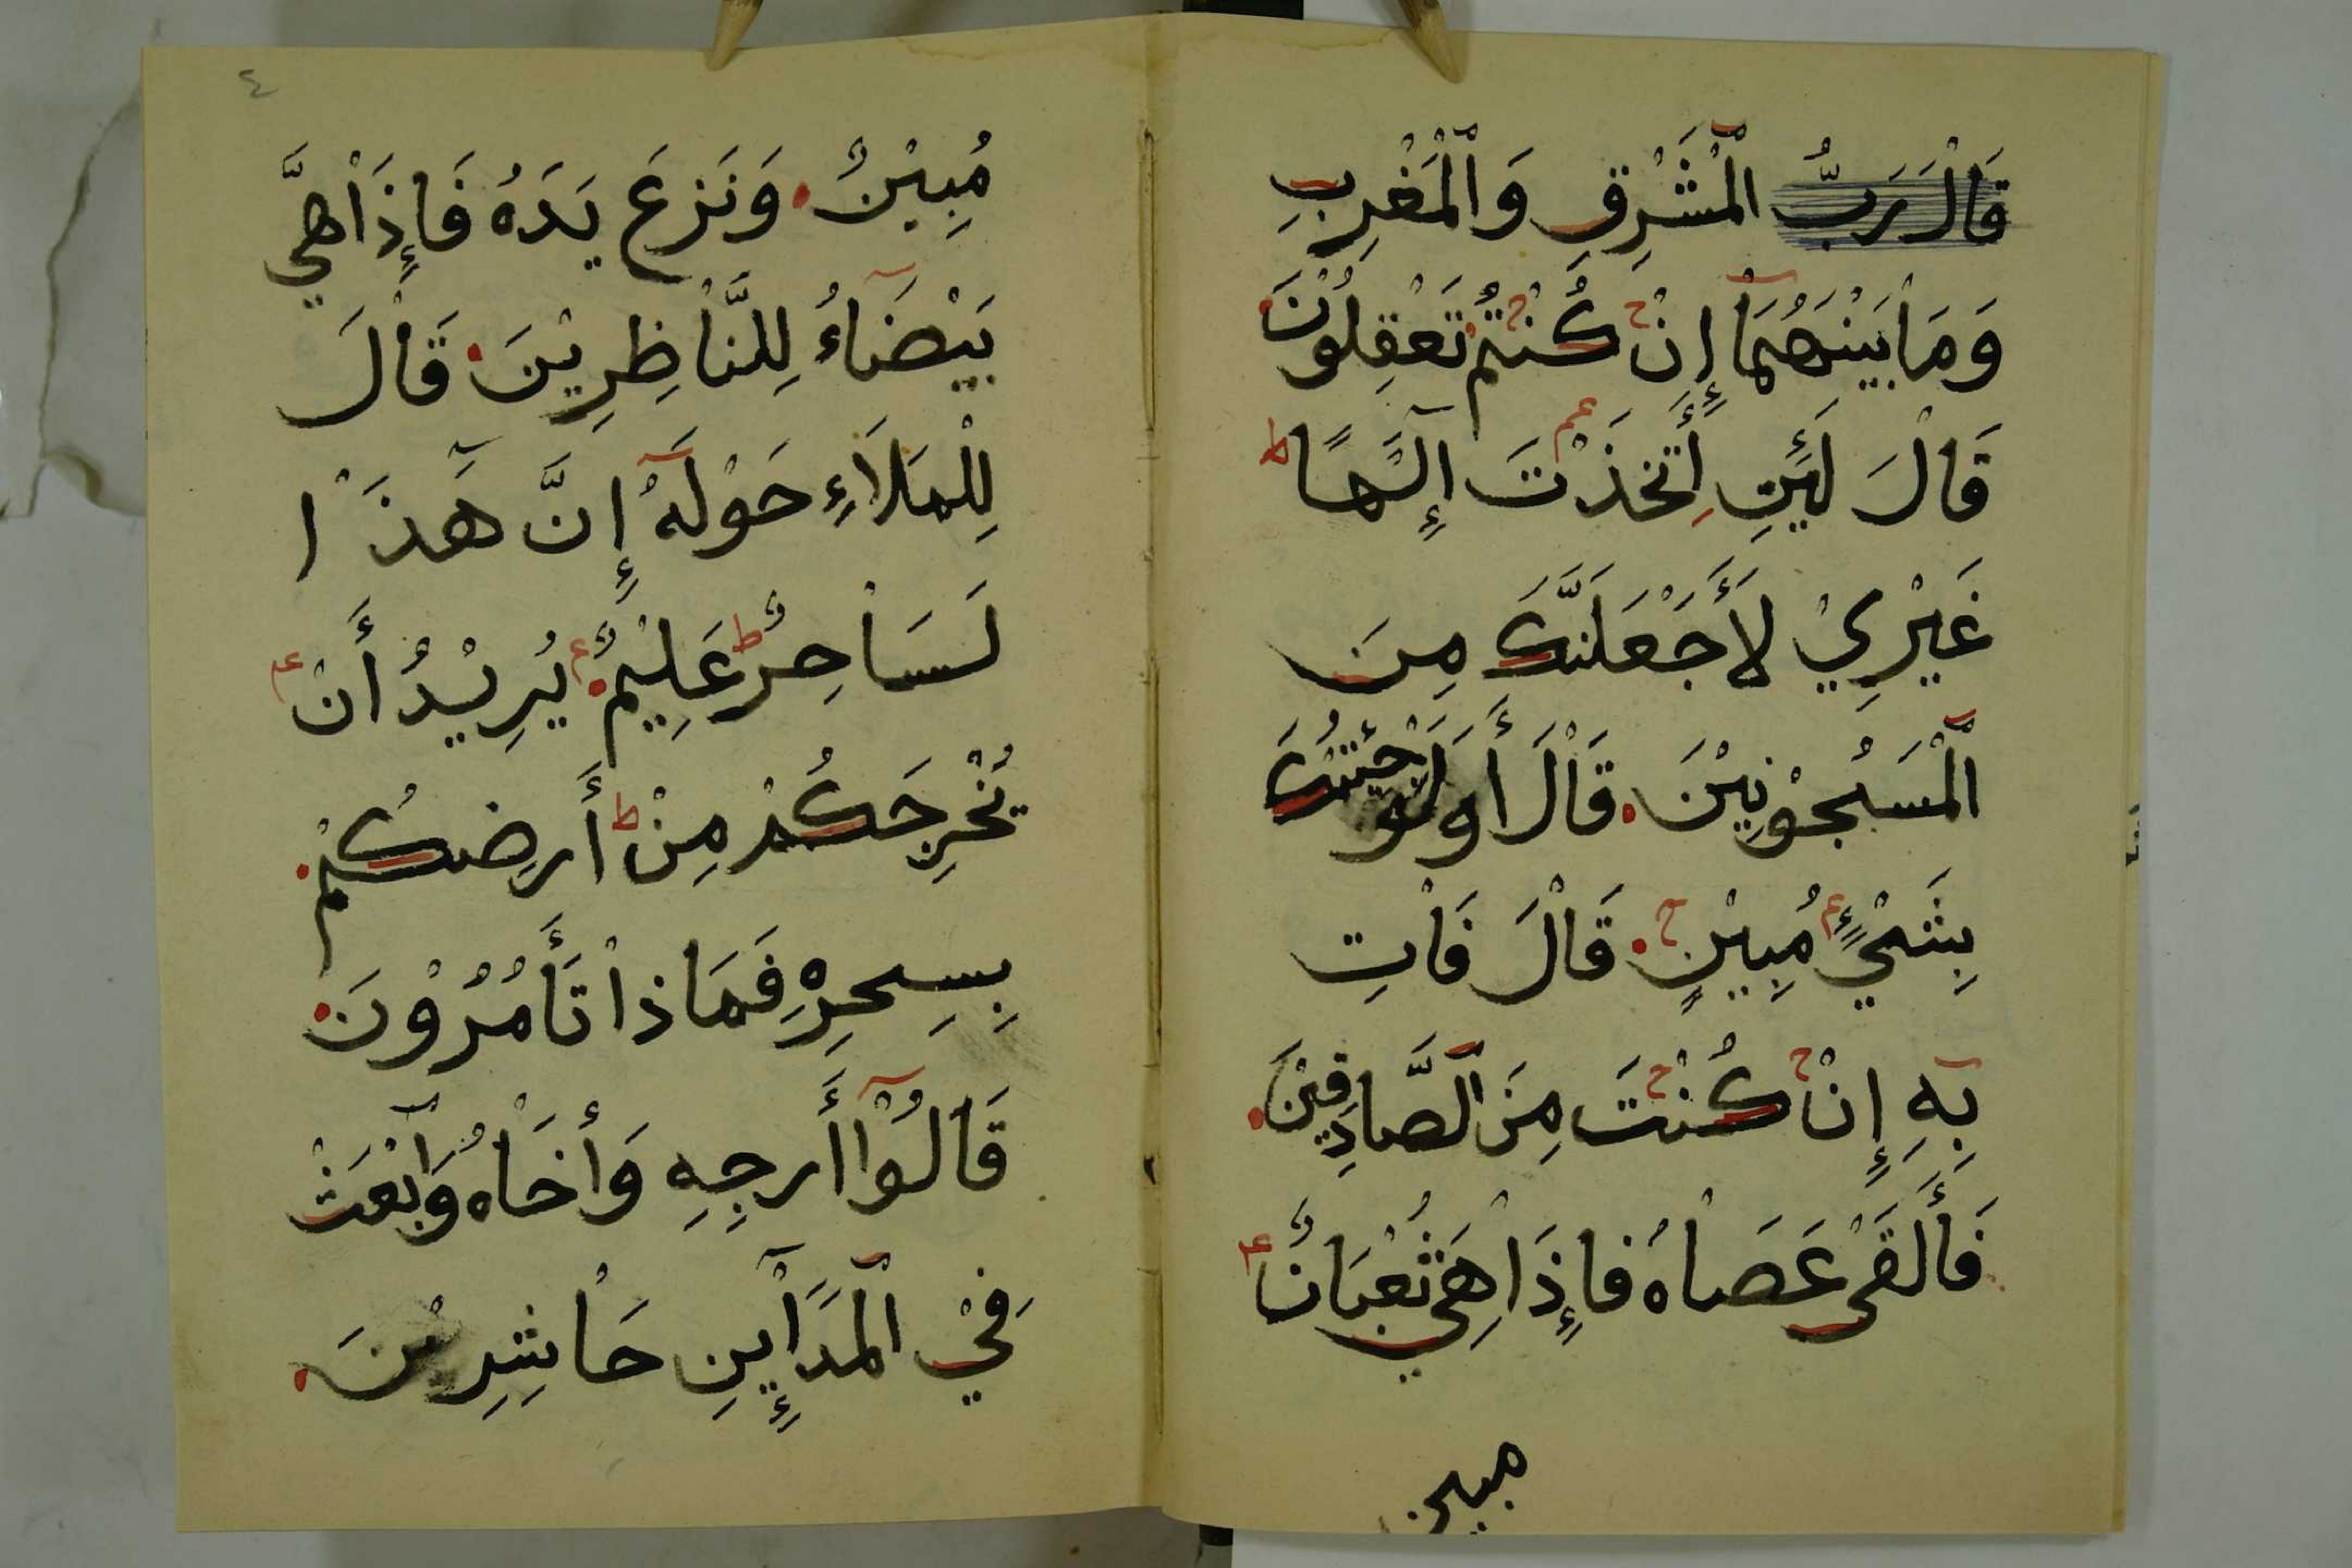 قَالَ رَبُّ الْمَشْرِقِ وَالْمَغْرِبِ
وَمَا بَيْنَهُمَا إِنْ كُنْتُمْ تَعْقِلُوْنَ
قَالَ لَئِنِ اِتَّخَذْتَ إِلَهًا ط
غَيْرِيْ لَأَجْعَلَنَّكَ مِنَ
الْمَسْجُوْنِيْنَ قَالَ أَوَلَوْ جِئْتُكَ
بِشَيْءٍ مُبِيْنٍ قَالَ فَاتِ
بِهِ إِنْ كُنْتَ مِنَ الصَّادِقِيْنَ
فَأَلْقَى عَصَاهُ فَإِذَا هِيَ ثُعْبَانٌ
مبين
٤
مُبِيْنٌ وَنَزَعَ يَدَهُ فَإِذَا هِيَ
بَيْضَاءُ لِلنَّاظِرِيْنَ قَالَ
لِلْمَلَاءِ حَوْلَهُ إِنَّ هَذَا
لَسَاحِرٌ عَلِيْمٌ يُرِيْدُ أَنْ
يُخْرِجَكُمْ مِنْ أَرضِكُمْ
بِسِحرِهِ فَمَاذَا تَأَمُرُوْنَ
قَالُوْا أَرجِهِ وَأَخَاهُ وَابْعَثْ
فِيْ الْمَدَايِٕنِ حَاشِرِيْنَ